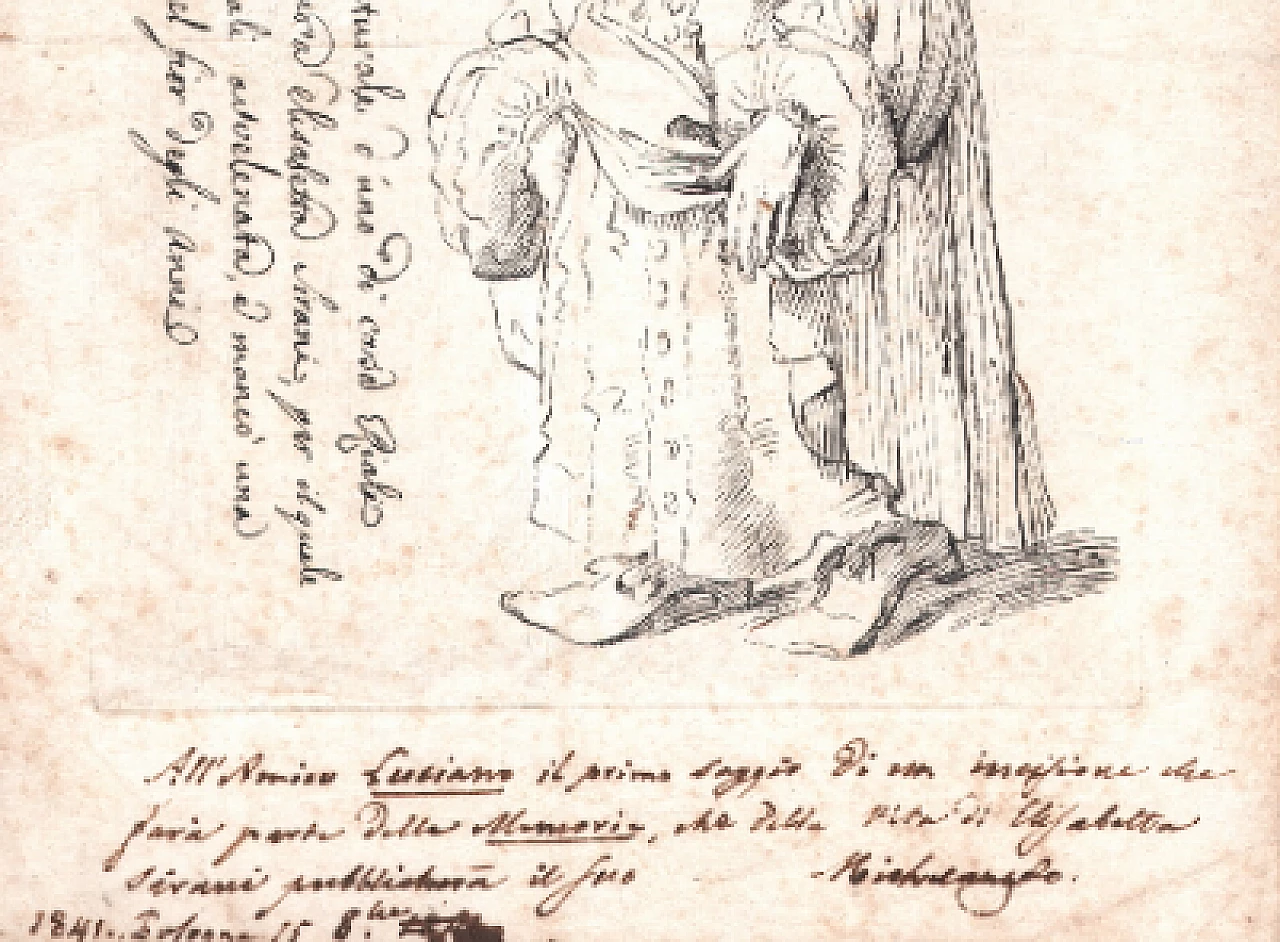 turale è uno di casa Riali
ora Elisabetta Sirani, per il quale
avvelenata, e mancò una
hor degli Anni
All' Amico Luciano il primo saggio di una incisione che
farà parte delle Memorie, che della Vita di Elisabetta
Sirani pubblicherà il suo Michelangelo.
1841. Bologna 15 8.bre